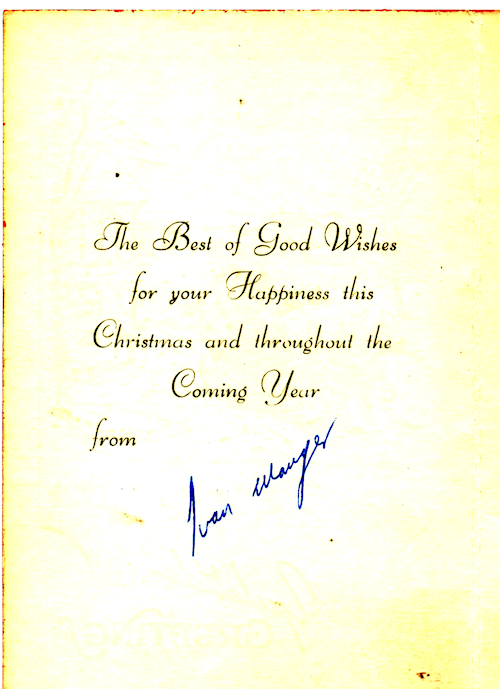 The Best of Good Wishes
for your Happiness this
Christmas and throughout the
Coming Year
from
Ivan Mauger